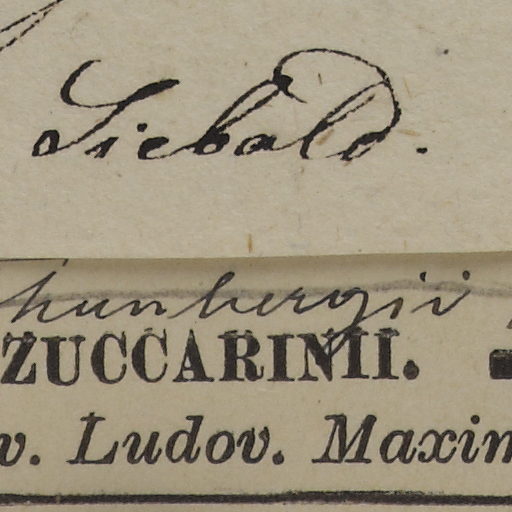 Siebald.
hunbergii
ZUCCARINII.
v. Ludov. Maxim